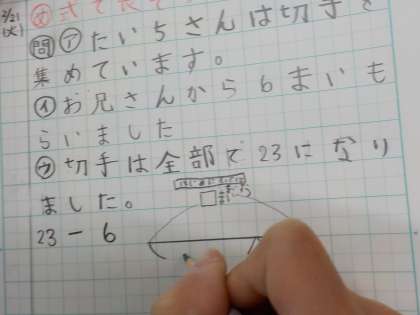 2/21
(火)
問 ア たいちさんは切手を
集めています。
イ お兄さんから6まいも
らいました
ウ 切手は全部で23になり
ました。
23-6